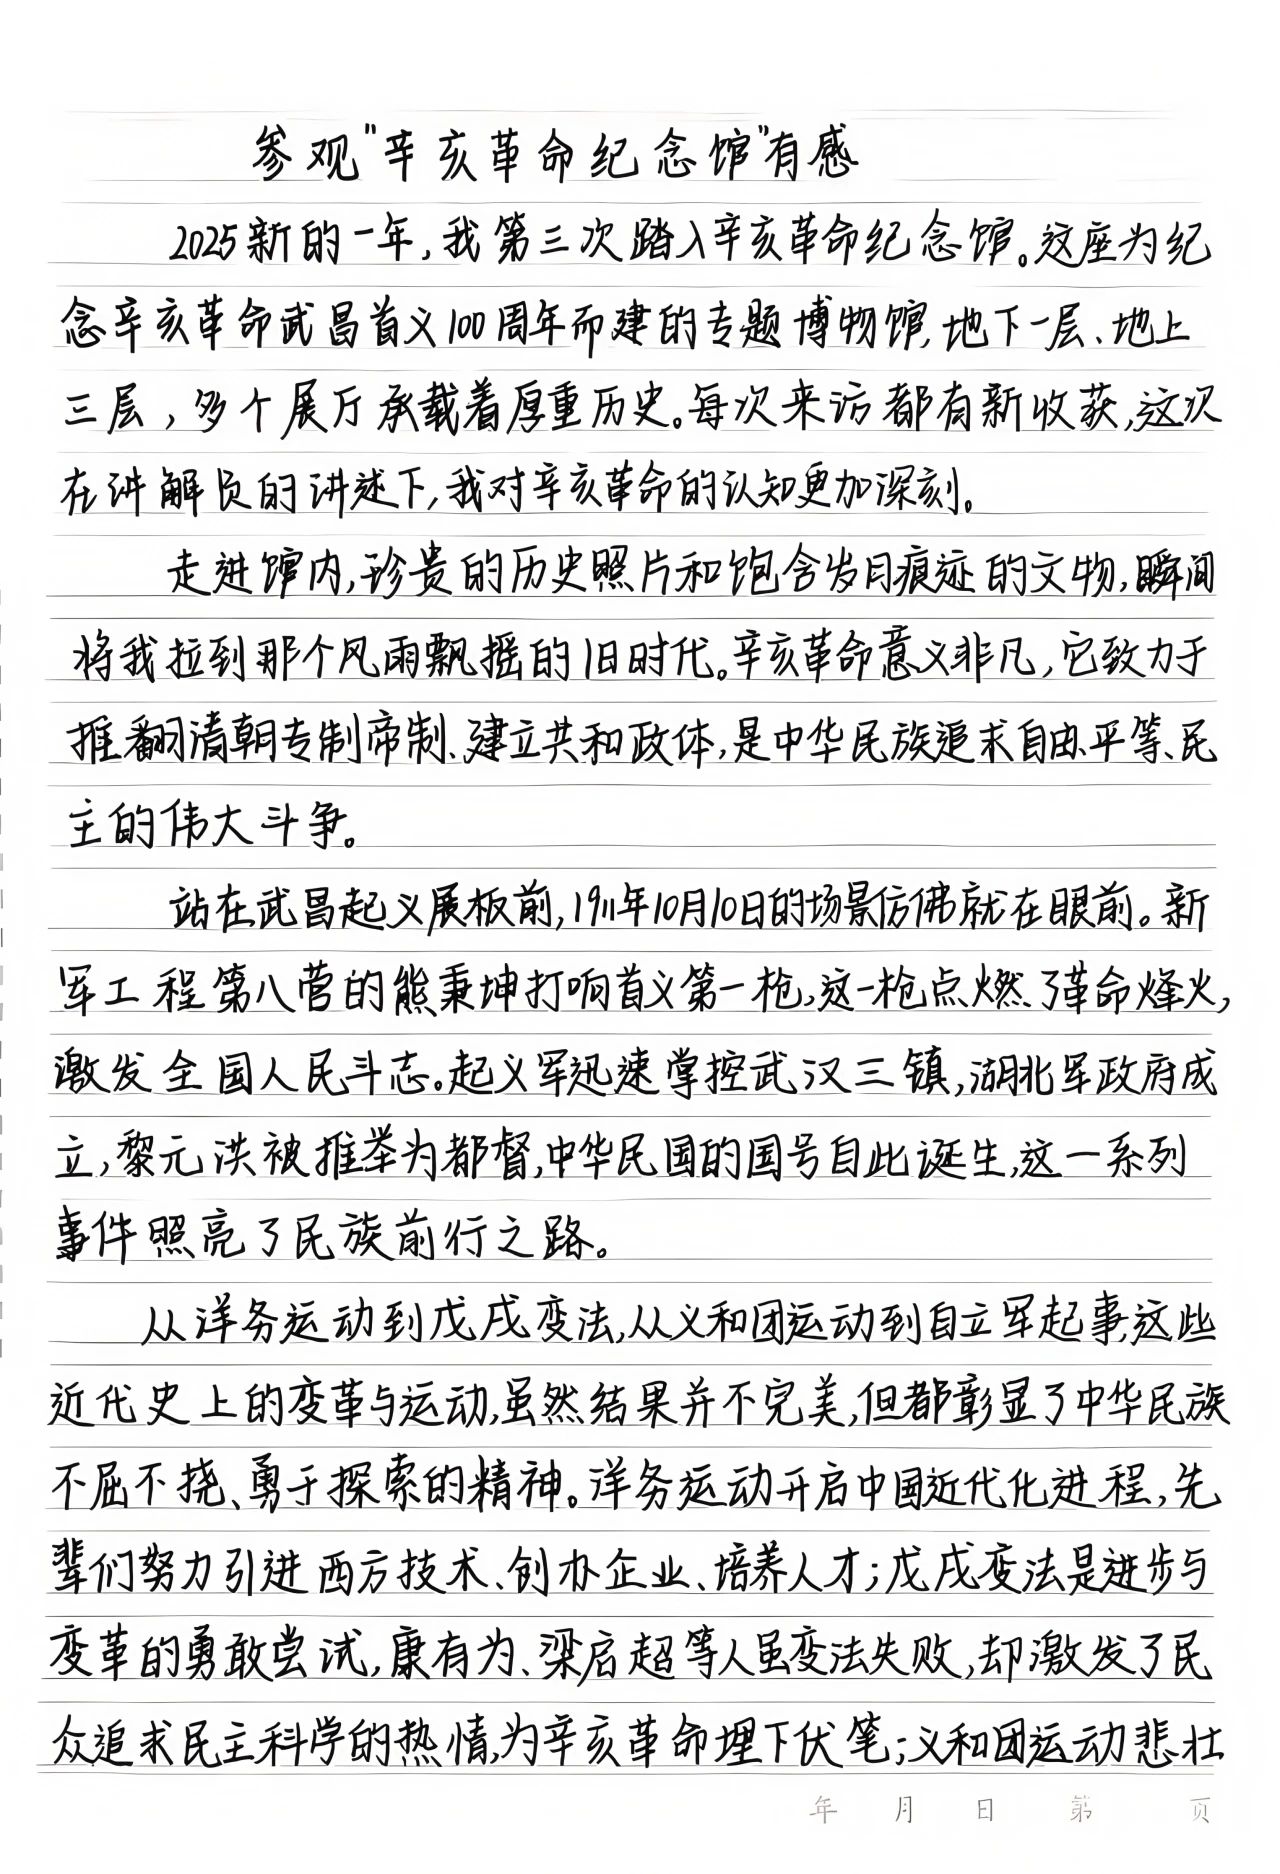 参观"辛亥革命纪念馆"有感
2025新的一年,我第三次踏入辛亥革命纪念馆。这座为纪
念辛亥革命武昌首义100周年而建的专题博物馆,地下一层、地上
三层,多个展厅承载着厚重历史。每次来访都有新收获,这次
在讲解员的讲述下,我对辛亥革命的认知更加深刻。
走进馆内,珍贵的历史照片和饱含岁月痕迹的文物,瞬间
将我拉到那个风雨飘摇的旧时代。辛亥革命意义非凡,它致力于
推翻清朝专制帝制、建立共和政体,是中华民族追求自由、平等、民
主的伟大斗争。
站在武昌起义展板前,1911年10月10日的场景仿佛就在眼前。新
军工程第八营的熊秉坤打响首义第一枪,这一枪点燃了革命烽火,
激发全国人民斗志。起义军迅速掌控武汉三镇,湖北军政府成
立,黎元洪被推举为都督,中华民国的国号自此诞生,这一系列
事件照亮了民族前行之路。
从洋务运动到戊戌变法,从义和团运动到自立军起事,这些
近代史上的变革与运动,虽然结果并不完美,但都彰显了中华民族
不屈不挠、勇于探索的精神。洋务运动开启中国近代化进程,先
辈们努力引进西方技术、创办企业、培养人才;戊戌变法是进步与
变革的勇敢尝试,康有为、梁启超等人虽变法失败,却激发了民
众追求民主科学的热情,为辛亥革命埋下伏笔;义和团运动悲壮
年 月 日 第 页